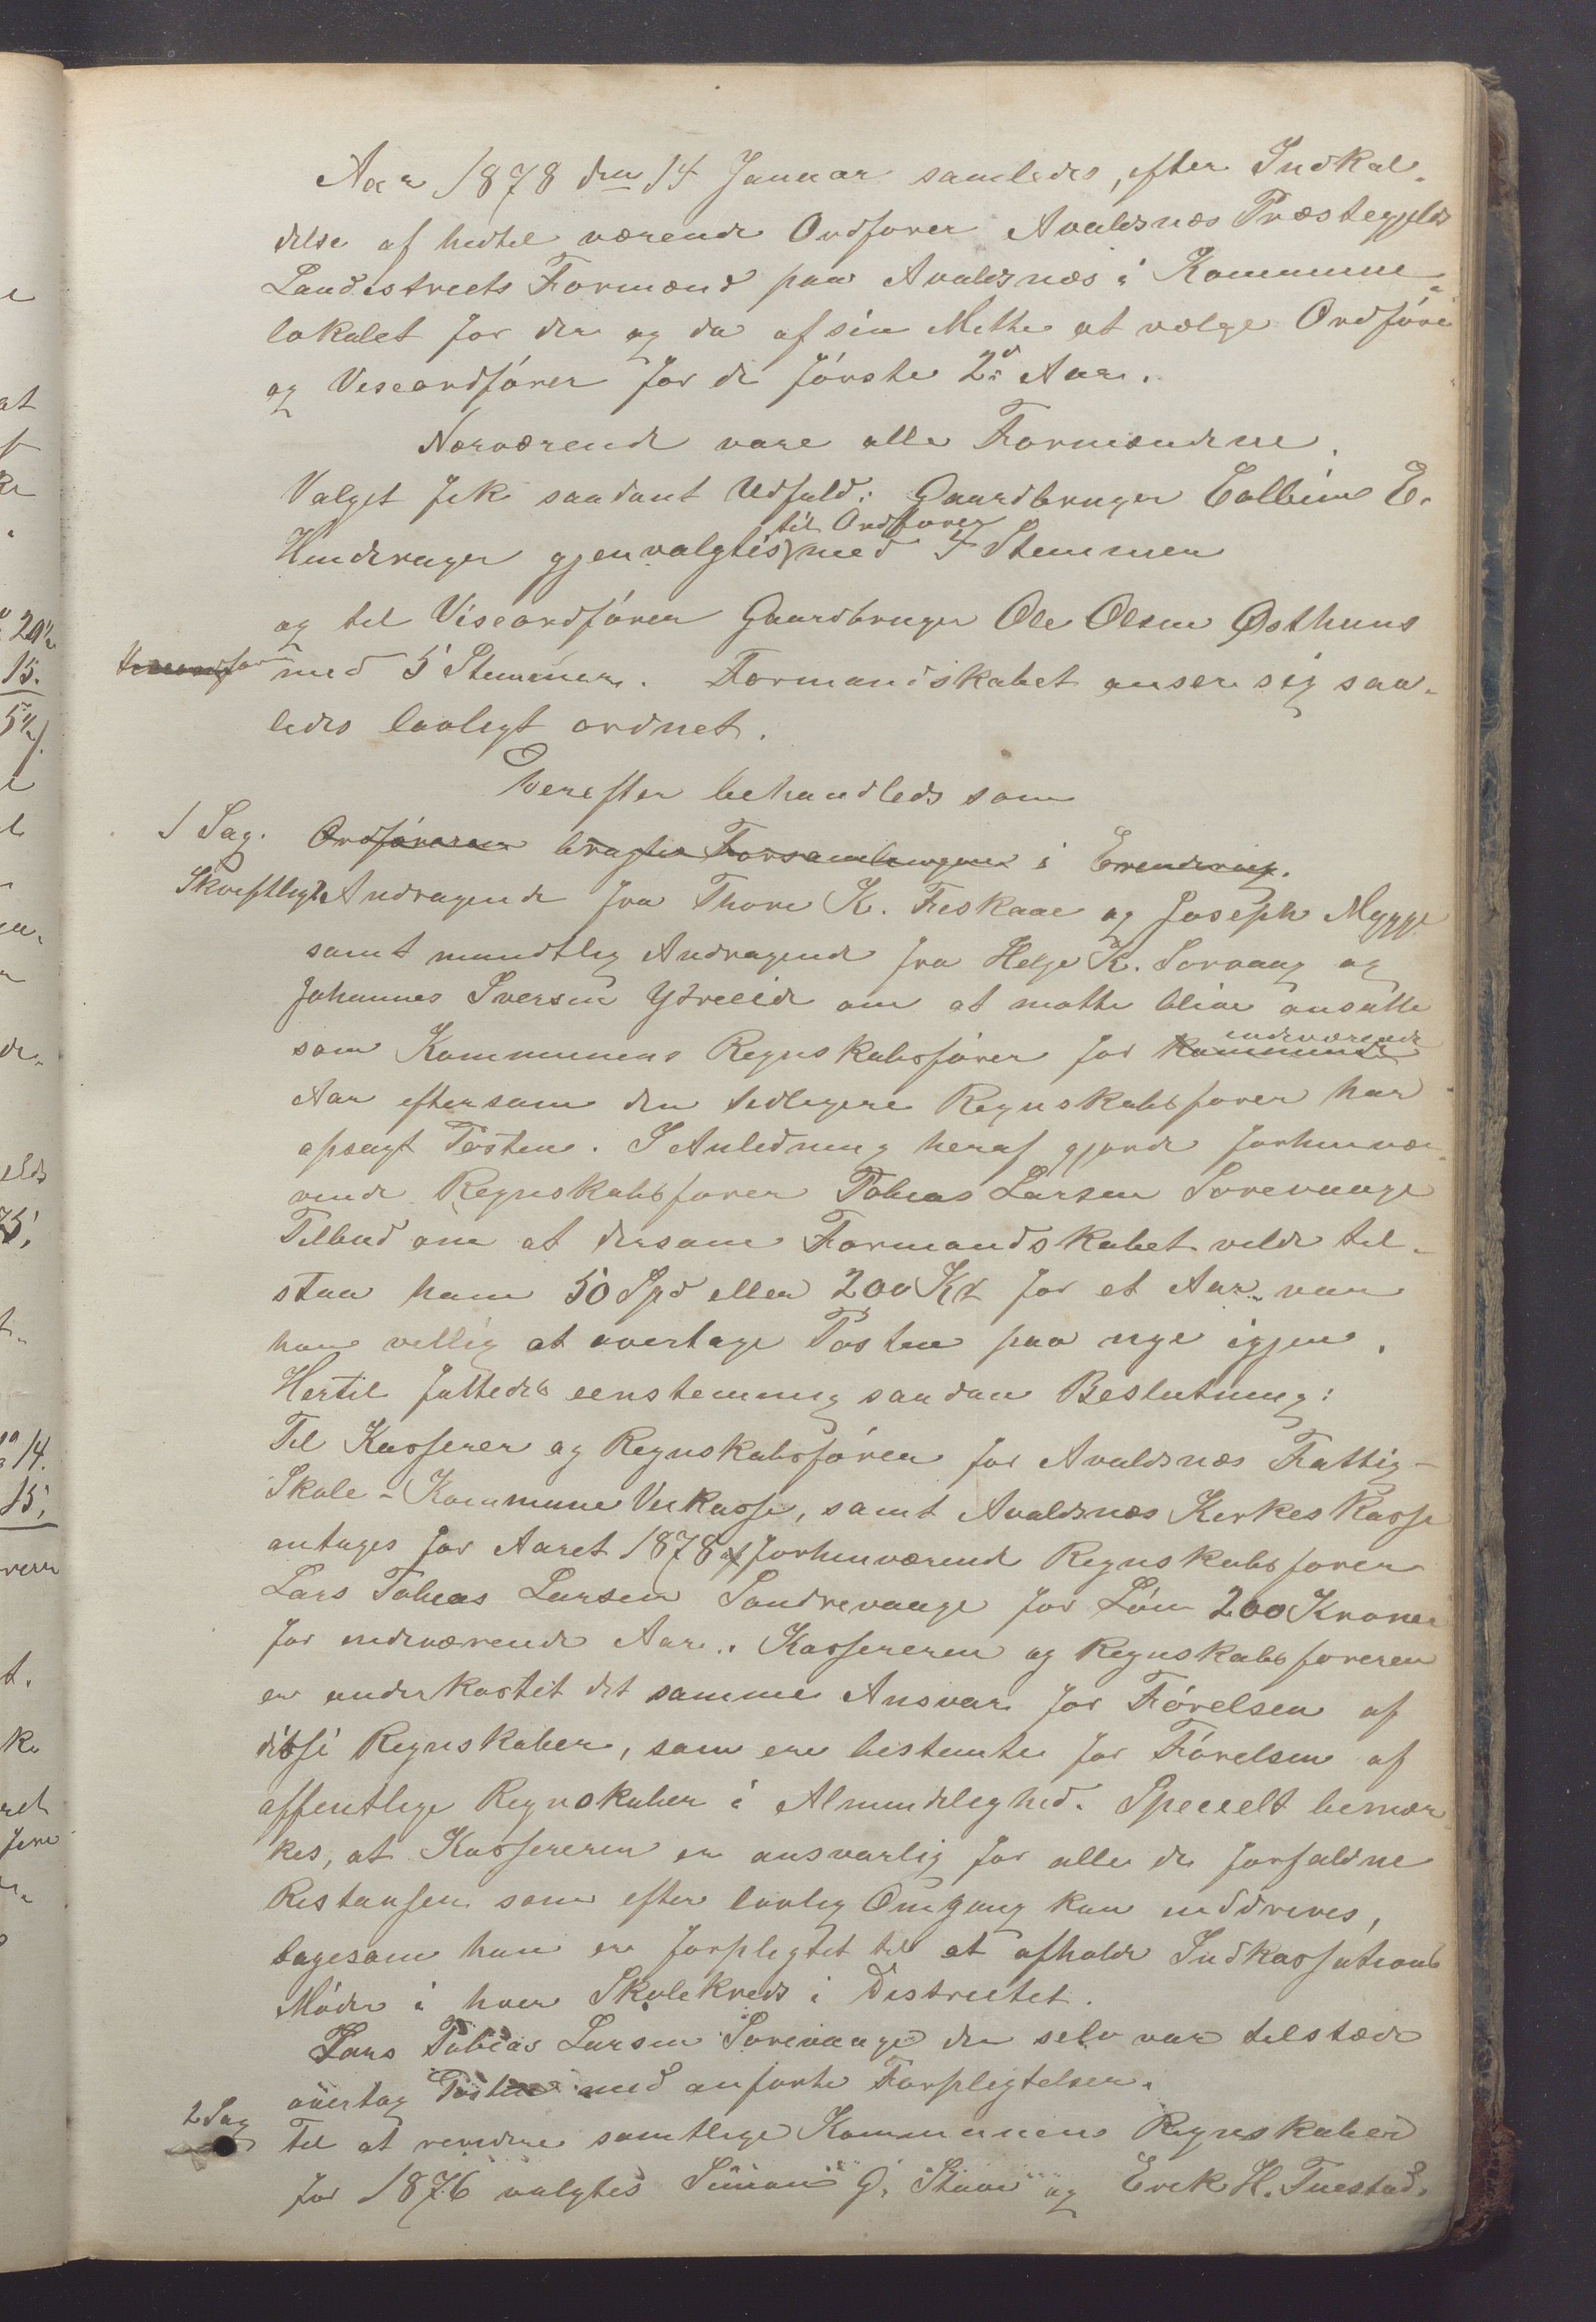 Aar 1878 den 14 Januar samledes, efter Indkal-
delse af hidtil værende Ordfører Avaldsnæs Præstegjelds
Landistrects Formænd paa Avaldsnæs i Kommune-
lokalet for der og da af sin Midte at vælge Ordføre
og Viseordfører for de første 2de Aar.
Nærværende vare alle Formændene.
Valget fik saadant Udfald: Gaardbruger Eolbim E.
til Ordfører
Hinderager gjenvalgtes med 4 Stemmer
og til Viseordfører Gaardbruger Ole Olsen Østhuus
med 5 Stemmer. Formandskabet anser sig saa-
ledes lovligt ordnet.
Derefter behandledes som
1 Sag. Ordføreren bragte Forsamlingen i Erendring.
Skriftligt Andragende fra Thore K. Fiskaae og Joseph Mygge
samt mundtlig Andragende fra Helge K. Sorvaag og
Johannes Iversen Ytreeide om at maatte blive ansatte
indeværende
som Kommunens Regnskabsfører for Kommunens
Aar eftersom den tidligere Regnskabsfører har
opsagt Posten. I Anledning heraf gjorde forhenvæ-
rende Regnskabsfører Tobias Larsen Sørevaage
Tilbud om at dersom Formandskabet vilde til-
staa ham 50 Spd eller 200 Kr for et Aar var
han villig at overtage Posten paa nye igjen.
Hertil fattedes eenstemmig saadan Beslutning:
Til Kasserer og Regnskabsfører for Avaldsnæs Fattig-
Skole- Kommune Veikasse, samt Avaldsnæs Kirkes Kasse
antages for Aaret 1878 af forhenværende Regnskabsfører
Lars Tobias Larsen Søndrevaage for Løn 200 Kroner
for indeværende Aar. Kassereren og Regnskabsføreren
er underkastet det samme Ansvar for Førelsen af
disse Regnskaber, som ere bestemte for Førelsen af
offentlige Regnskaber i Almindelighed. Specielt bemær
kes, at Kassereren er ansvarlig for alle de forfaldne
Restanser som efter lovlig Omgang kan inddrives,
ligesom han er forpligtet til at afholde Indkassations
Møder i hver Skolekreds i Distrectet.
Lars Tobias Larsen Sørevaage der selv var tilstæde
overtog Posten med anførte Forpligtelser.
2 Sag Til at revidere samtlige Kommunens Regnskaber
for 1876 valgtes Simon G. Stave og Erek H. Tuestad.